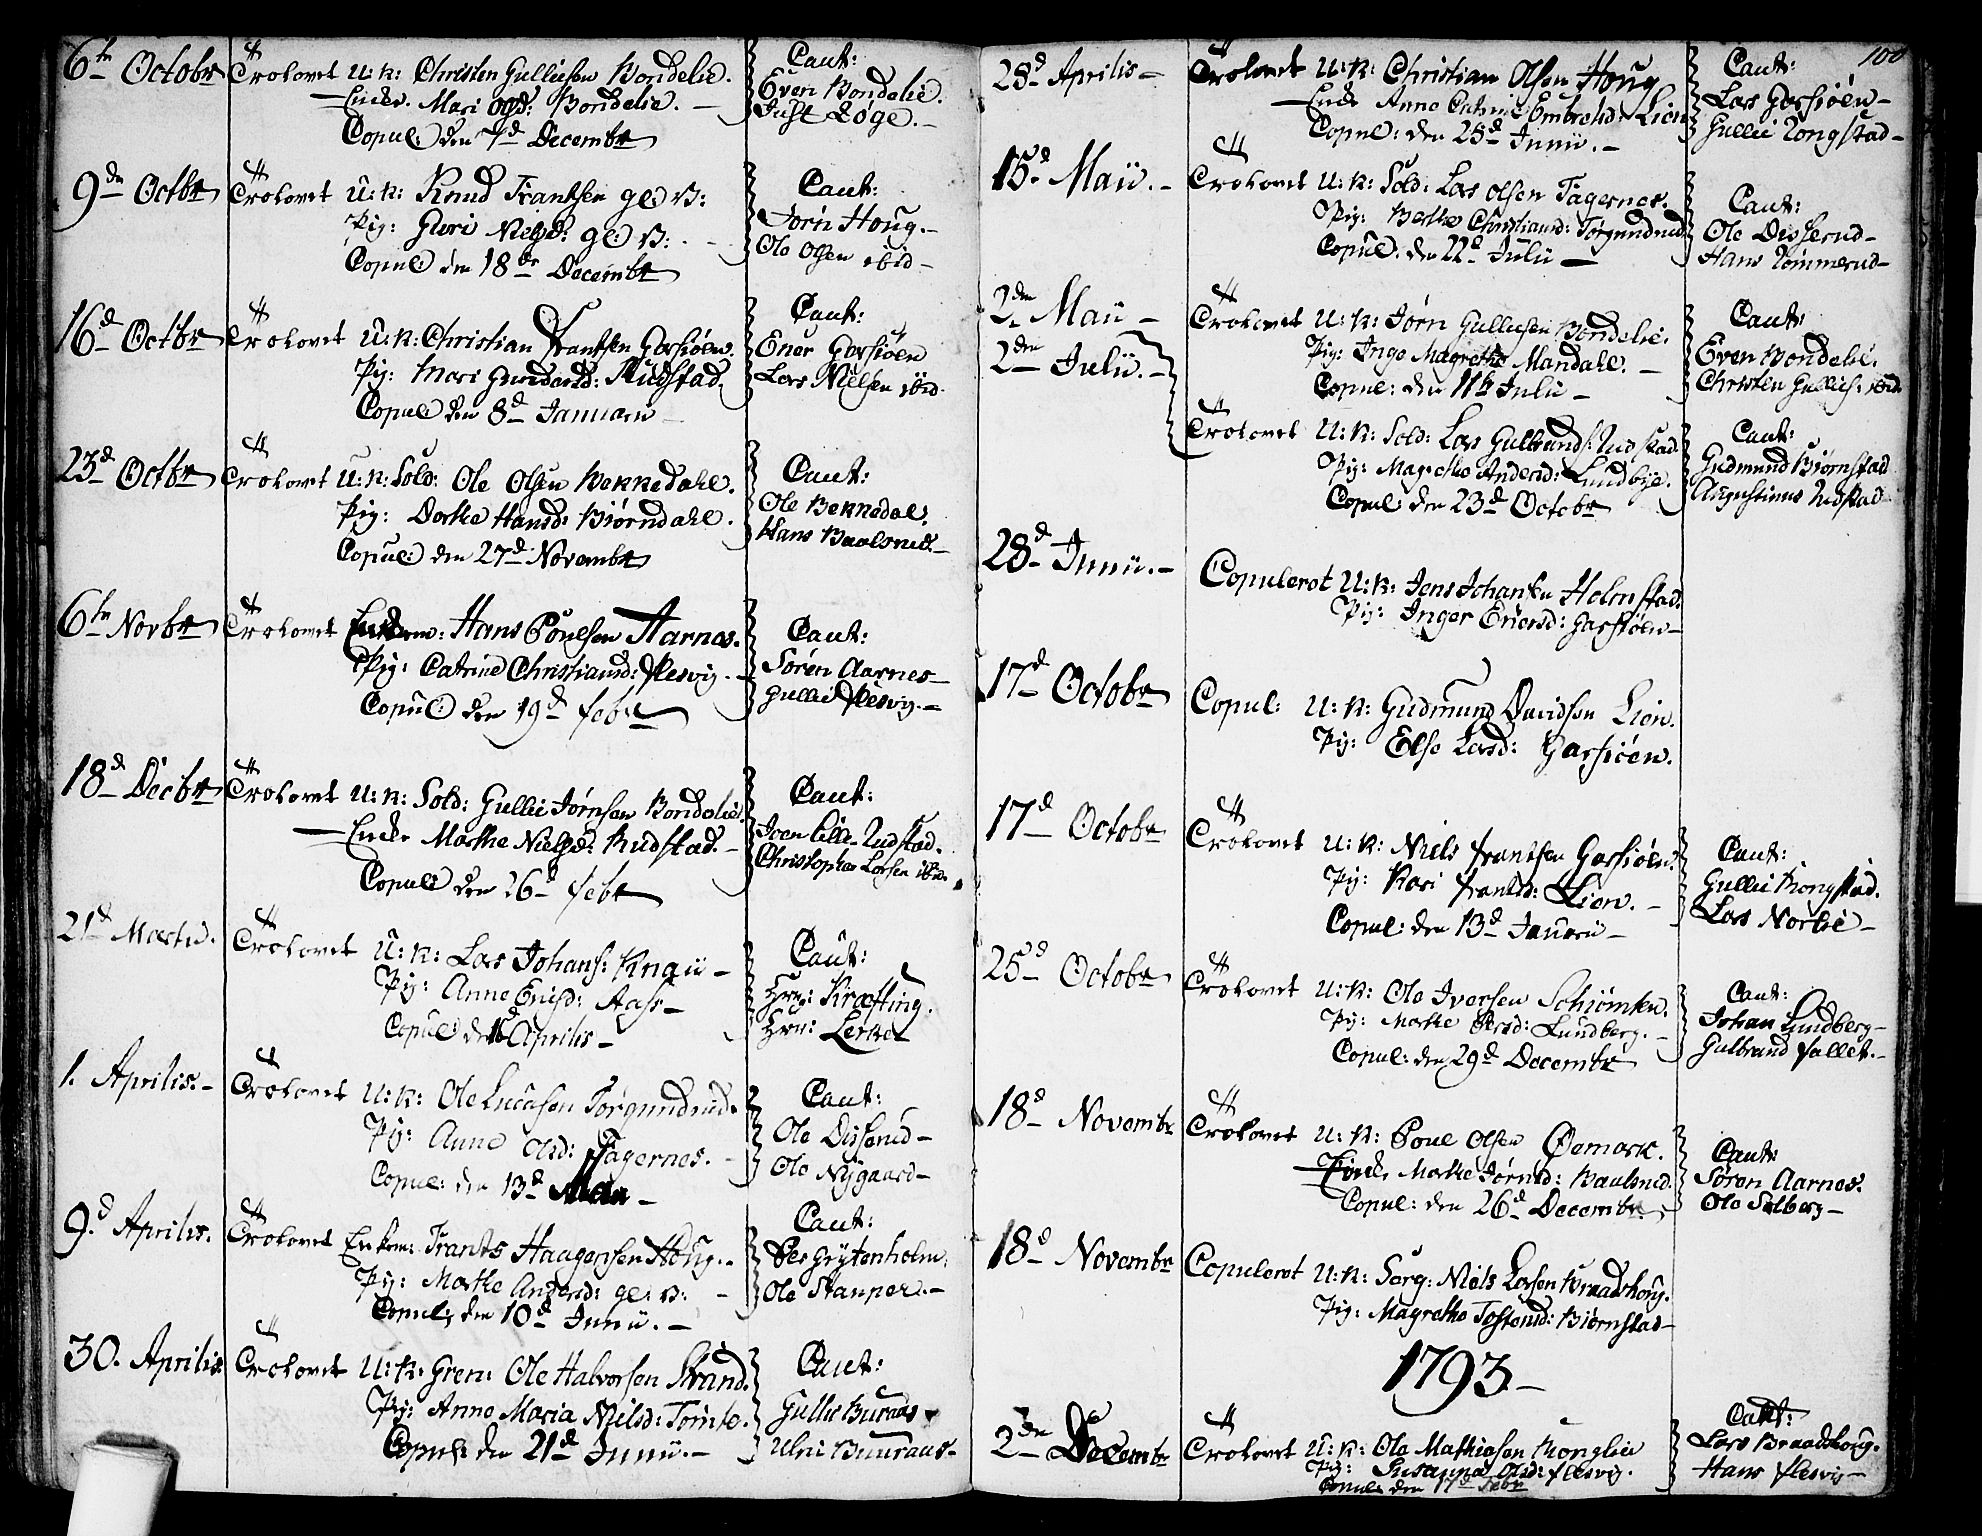 6te Octobr Trolovet U: K: Christen Gulliesen Bondelie.
Enke. Mari Olsd: Bondelie. —
Copul: den 7d Decembr
Caut:
Even Bondelie.
Just Løge. —
9de Octbr Trolovet U: K: Knud Frantsen ge: B:
Pig: Guri Nielsd: ge: B:
Copul: den 18de Decembr
Caut:
Jørn Houg. —
Ole Olsen ibid —
16d Octbr Trolovet U: K: Christian Frantsen Gorsiøen.
Pig: Mari Gundersd: Rudstad.
Copul: den 8d Januarii —
Caut:
Ener Gorsiøen
Lars Nielsen ibid.
23d Octbr Trolovet U: K: Sold: Ole Olsen Bennedahl.
Pig: Dorthe Hansd: Biørndahl.
Copul: den 27d Novembr
Caut:
Ole Bennedal.
Hans Baalsrud. —
6te Novbr Trolovet Enkem: Hans Poulsen Aarnes.
Pig: Catrine Christiansd: Flesvig. —
Copul: den 19d Febr
Caut:
Søren Aarnes —
Gullie Flesvig. —
18d Decbr Trolovet U: K: Sold: Gullie Jørnsen Bondelie.
Enke Marthe Nielsd: Rudstad. —
Copul: den 26d Febr
Caut:
Joen Lille-Rudstad.
Christopher Larsen ibid.
21d Martii. Trolovet U: K: Lars Johans: Knaii —
Pig: Anne Enisd: Aass —
Copul: den 16 Aprilis —
Caut:
Hrr: Kræfting.
Hrr: Lerke
1. Aprilis. — Trolovet U: K: Ole Lucasen Torgundrud.
Pig: Anne Olsd: Fagernes. —
Copul: den 13d Maii —
Caut:
Ole Disserud —
Ole Nygaard —
9d Aprilis. Trolovet Enkem: Frants Haagensen Houg. —
Pig: Marthe Andersd: ge: B: —
Copul: den 10d Junii. —
Caut:
Per Grytenholm.
Ole Stamper. —
30. Aprilis Trolovet U: K: Gren: Ole Halvorsen Strand.
Pig: Anne Maria Nielsd: Tomte.
Copul: den 21d Junii. —
Caut:
Gullie Buraas
Ulric Buuraas —
100
28d Aprilis — Trolovet U: K: Christian Olsen Houg
Enke Anne Catrine Embretsd: Lien
Copul: den 25d Junii. —
Caut:
Lars Gorsiøen —
Gullie Kongstad —
15d Maii. — Trolovet U: K: Sold: Lars Olsen Fagernes.
Pig: Berthe Christiansd: Torgundrud
Copul: den 22d Julii —
Caut:
Ole Disserud —
Hans Tommerud —
2den Maii — Trolovet U: K: Jørn Gulliesen Bondelie.
Pig: Inge Magrethe Mandahl. —
Copul: den 11te Julii —
Caut:
Even Bondelie.
Christen Gullies: ibid.
2den Julii. — Trolovet U: K: Sold: Lars Gulbrands: Rudstad.
Pig: Magrethe Andersd: Lundbye.
Copul: den 23d Octobr
Caut:
Gudmund Biørnstad
Augustinus Rudstad
28d Junii. — Copuleret U: K: Jens Johansen Holmstad.
Pig: Inger Enersd: Garsiøen —
17d Octobr Copul: U: K: Gudmund Davidsen Lien.
Pig: Else Larsd: Garsiøen.
17d Octobr Trolovet U: K: Niels Frantsen Garsiøen.
Pig: Kari Frantsd: Lien. —
Copul: den 13d Januarii —
Caut:
Gullie Kongstad.
Lars Norbie —
25d Octobr Trolovet U: K: Ole Iversen Schiømten.
Pig: Marthe Persd: Lundberg. —
Copul: den 29d Decembr
Caut:
Johan Lundberg —
Gulbrand Fallet. —
18d Novembr Trolovet U: K: Poul Olsen Øemark.
Enke Marthe Jørnsd: Baalsrud.
Copul: den 26d Decembr.
Caut:
Søren Aarnes.
Ole Solberg —
18d Novembr Copuleret U: K: Serg: Niels Larsen Braadshoug.
Pig: Magrethe Tostensd: Biørnstad —
1793 —
2den Decembr Trolovet U: K: Ole Mathiesen Konglie
Pig: Susanna Olsd: Flesvig.
Copul: den 17d Febr
Caut:
Lars Braadshoug.
Hans Flesvig —